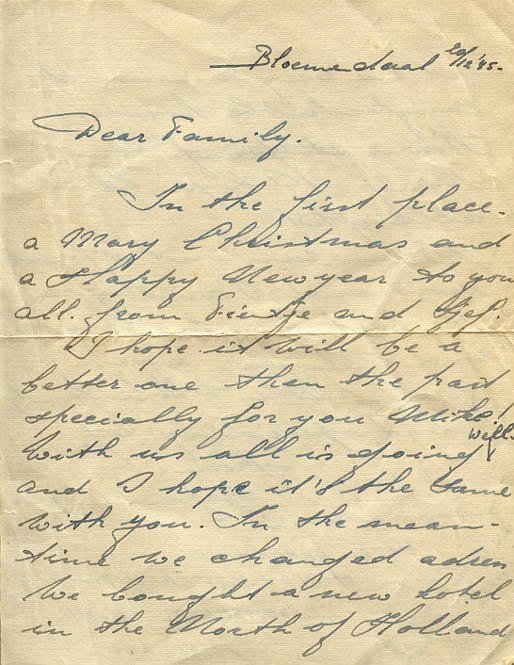 Bloemendaal 20/12 '45.
Dear Family.
In the first place.
a Mary Christmas and
a Happy Newyear to you
all. from Fientje and Jef.
I hope it will be a
better one then the past
specially for you Mike!
with us all is going well.
and I hope it's the same
with you. In the mean-
time we changed adress
we bought a new hotel
in the North of Holland